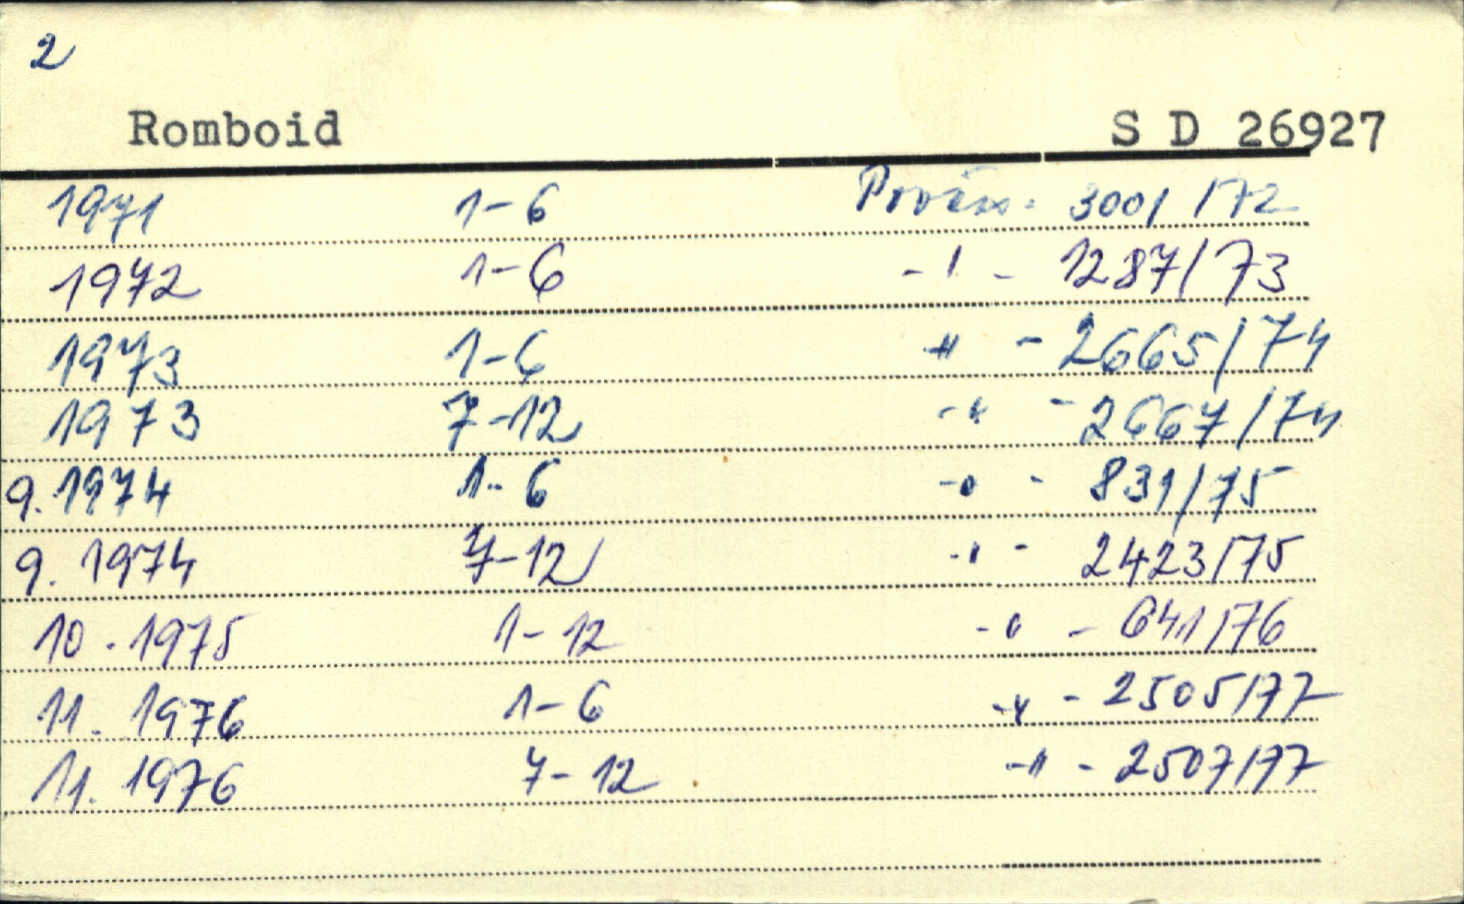 2
Romboid S D 26927
1971 1-6 Povin. 3001/72
1972 1-6 -"- 1287/73
1973 1-6 -"- 2665/74
1973 7-12 -"- 2667/74
9. 1974 1-6 -"- 831/75
9. 1974 7-12 -"- 2423/75
10. 1975 1-12 -"- 641/76
11. 1976 1-6 -"- 2505/77
11. 1976 7-12 -"- 2507/77